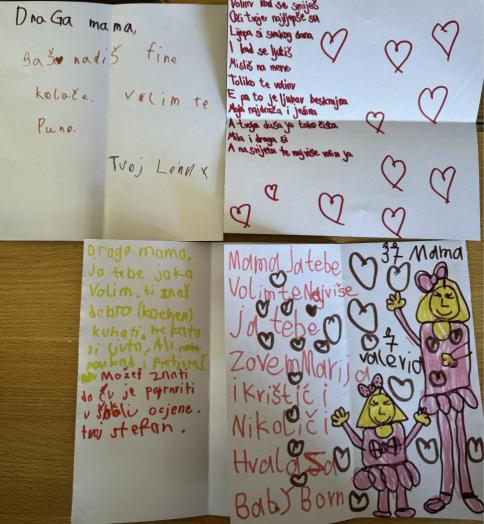 DRaGa mama,
Baš nadiš fine
kolače. volim te
Puno.
Tvoj Lenox
Volim kad se smiješ
Oči tvoje najljepše su
Ljepa si svakog dana
I kad se ljutiš
Misliš na mene
Toliko te volim
E pa to je ljubav beskrajna
Moja najdraža i jedina
A tvoja duša je tako čista
Mila i draga si
A na svijetu te najviše volim ja
Draga mama,
ja tebe jaka
Volim. ti znaš
dobro (kochen)
kuhati. nekato
si ljuta, Ali
ponkad
Možeš znati
da ću je popraviti
u školi ocjene.
tvoj stefan.
Mama ja tebe
Volim te Najviše
ja tebe
Zovem Marija
i krištič i
Nikolič i
Hvala sa
Baby Born
37 Mama
7
valeria